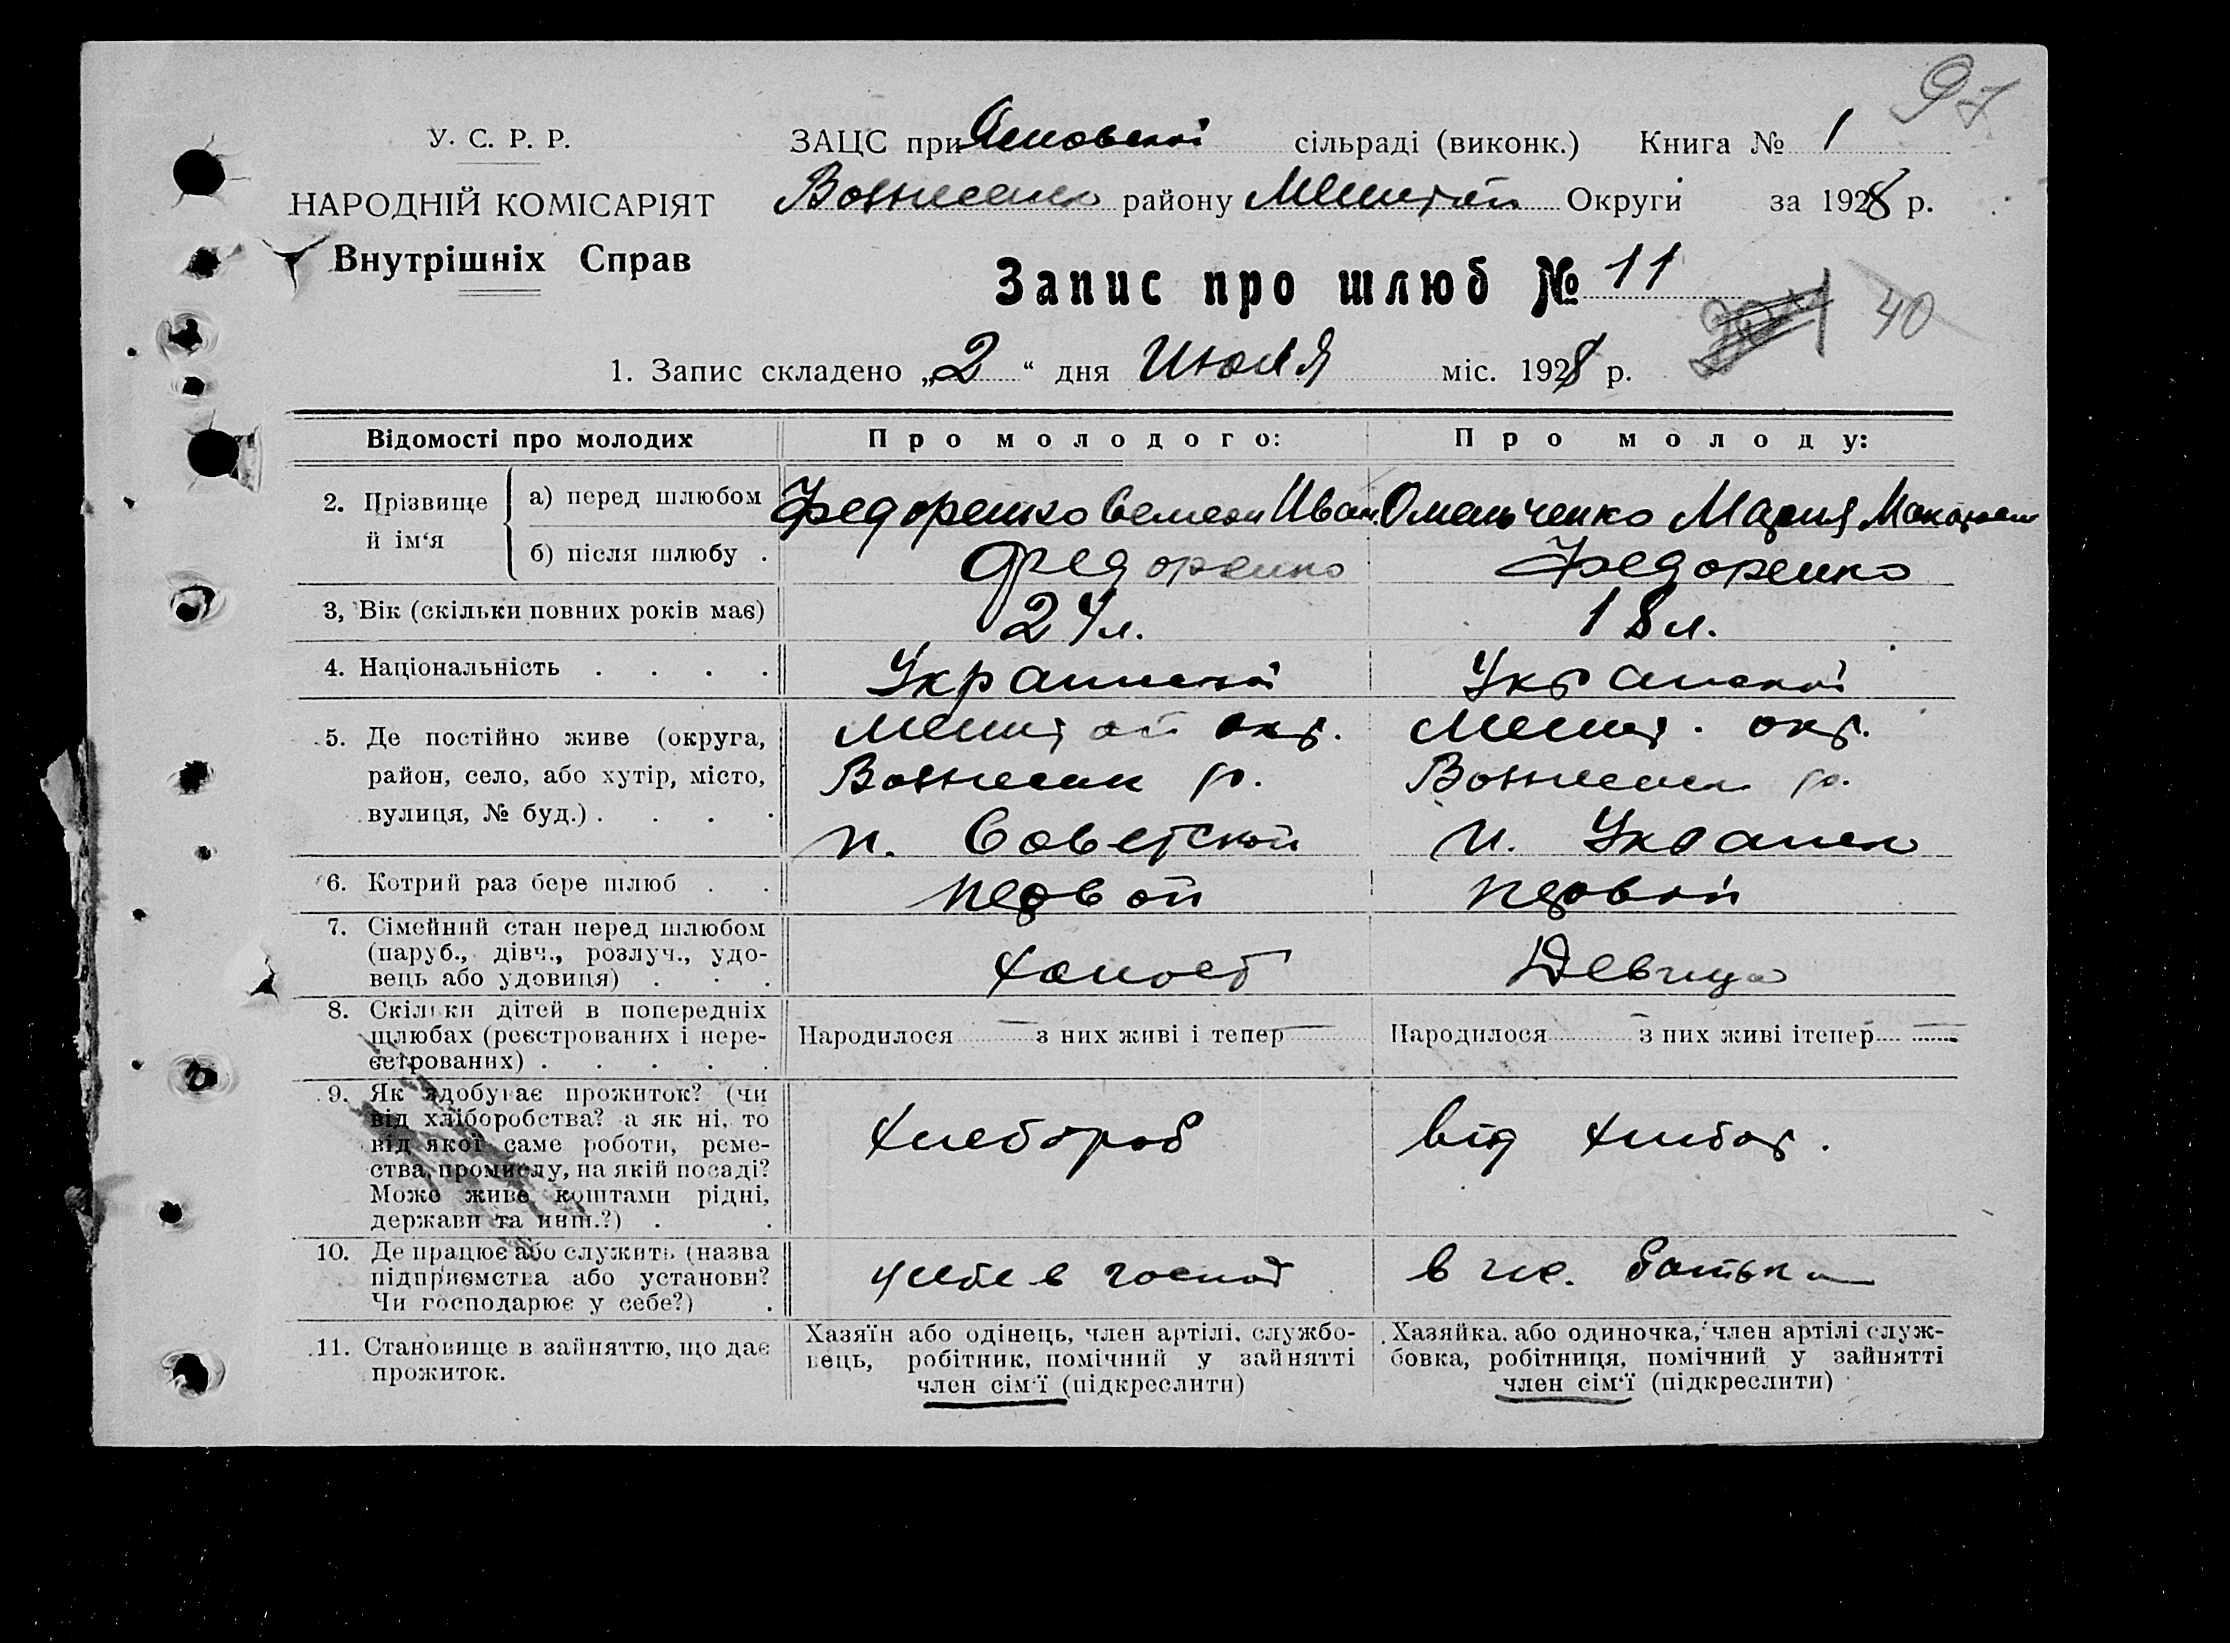 97
У. С. Р. Р.
ЗАЦС при сільраді (виконк.) Книга № 1
НАРОДНІЙ КОМІСАРІЯТ
району Округи за 1928 р.
Внутрішніх Справ
Запис про шлюб № 11
40
1. Запис складено „2“ дня Июля міс. 1928 р.
Відомості про молодих
Про молодого:
Про молоду:
2. Прізвище й ім‘я
а) перед шлюбом
Федоренко Семен Иван.
Омельченко Мария Макаров
б) після шлюбу .
Федоренко
Федоренко
3, Вік (скільки повних років має)
24 л.
18 л.
4. Національність . . . .
Украинской
Украинской
5. Де постійно живе (округа,
район, село, або хутір, місто,
вулиця, № буд.) . . . .
окр.
Вознесен р.
п. Советской
окр.
Вознесен р.
6. Котрий раз бере шлюб . .
первой
первой
7. Сімейний стан перед шлюбом
(паруб., дівч., розлуч., удо-
вець або удовиця) . . .
холост
Девица
8. Скільки дітей в попередніх
шлюбах (реєстрованих і нере-
єстрованих) . . . . .
Народилося — з них живі і тепер —
Народилося — з них живі ітепер —
9. Як здобуває прожиток? (чи
від хліборобства? а як ні, то
від якої саме роботи, реме-
ства, промислу, на якій посаді?
Може живе коштами рідні,
держави та инш.?) . .
хлебороб
від хлибор.
10. Де працює або служить (назва
підприємства або установи?
Чи господарює у себе?) .
у себе в госпоd
в гос. батька
11. Становище в зайняттю, що дає
прожиток.
Хазяїн або одінець, член артілі, службо-
вець, робітник, помічний у зайнятті
член сім‘ї (підкреслити)
Хазяйка, або одиночка, член артілі служ-
бовка, робітниця, помічний у зайнятті
член сім‘ї (підкреслити)